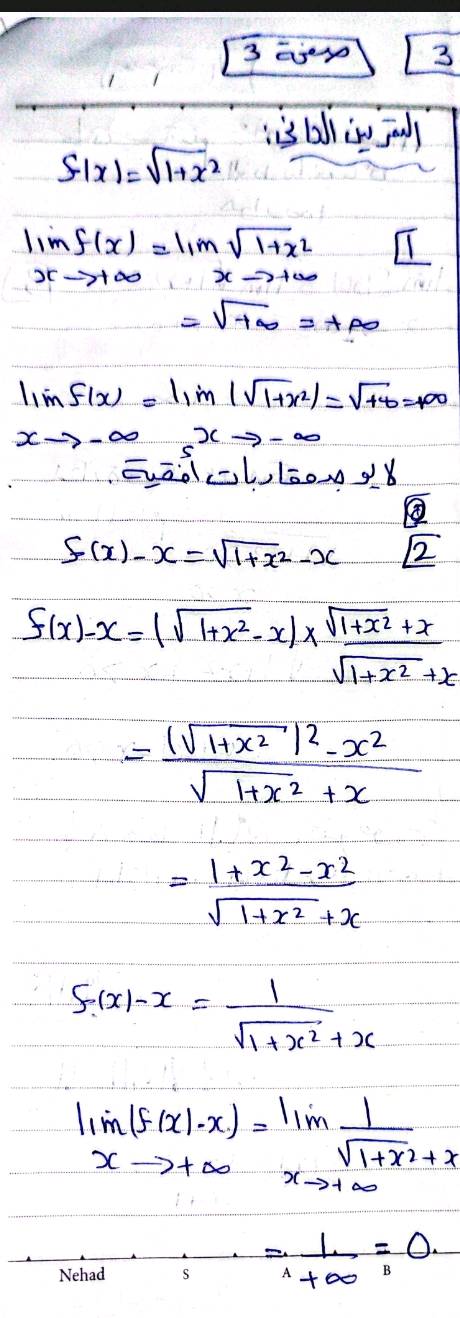 3 صفحة 3
التمرين الثاني:
f(x)=√1+x²
lim f(x) = lim √1+x² 1
x→+∞ x→+∞
= √+∞ = +∞
lim f(x) = lim (√1+x²) = √+∞ = +∞
x→-∞ x→-∞
لا يوجد مقاربات أفقية.
f(x)-x = √1+x² -x 2
f(x)-x = (√1+x² -x) × √1+x² +x / √1+x² +x
= (√1+x²)² -x² / √1+x² +x
= 1+x²-x² / √1+x² +x
f(x)-x = 1 / √1+x² +x
lim(f(x)-x) = lim 1 / √1+x² +x
x→+∞ x→+∞
= 1/+∞ = 0.
Nehad S A B